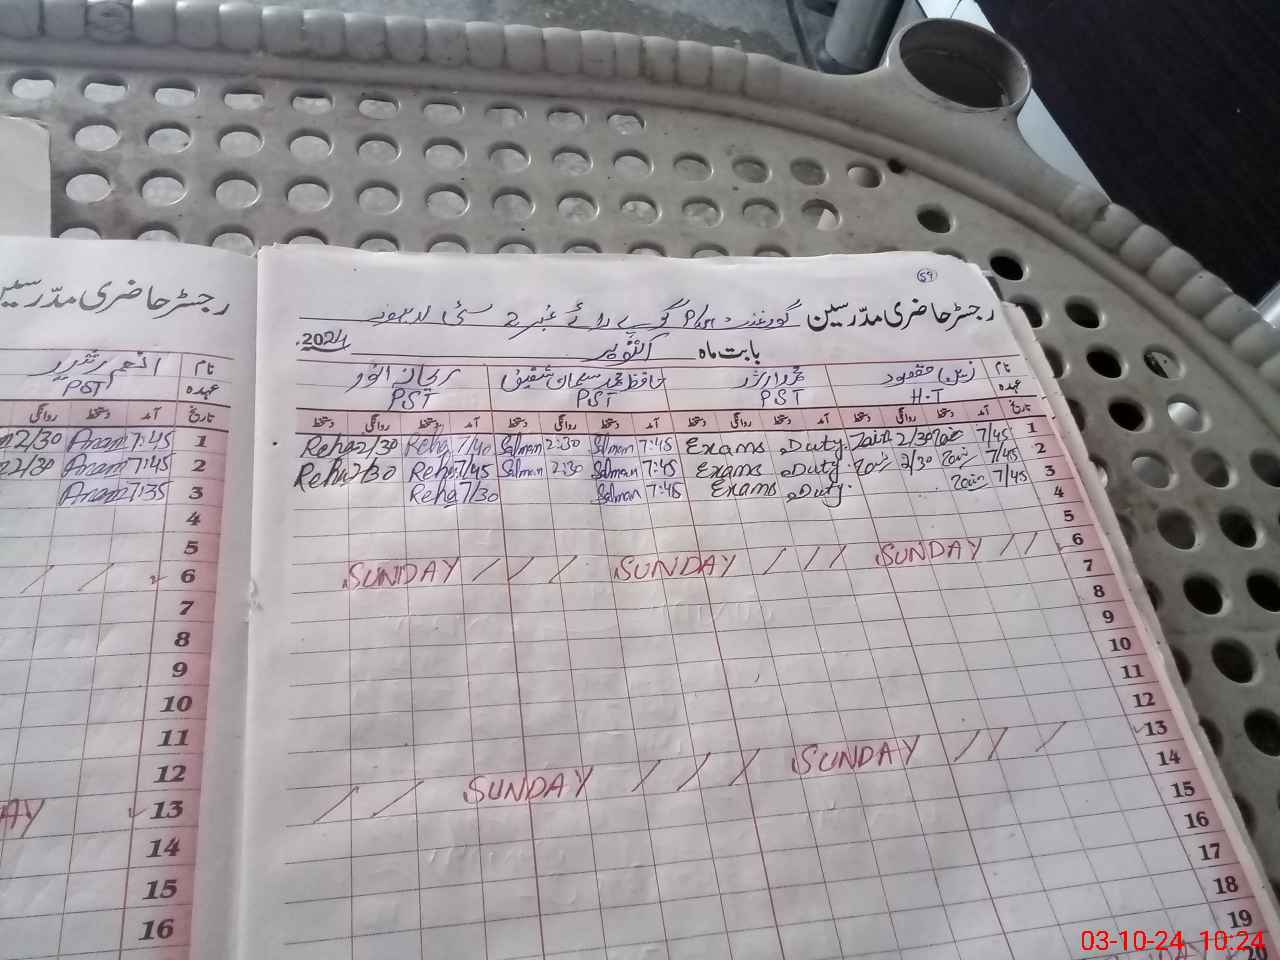 59
رجسٹر حاضری مدرسین گورنمنٹ P/H نمبر 2 سٹی
بابت ماہ اکتوبر 2024
نام زین مقصود حافظ محمد سلیمان شفیق ریحانہ انور
عہدہ H.T PST PST PST
تاریخ آمد دستخط روانگی دستخط آمد دستخط روانگی دستخط آمد دستخط روانگی دستخط آمد دستخط روانگی دستخط
1 7/45 Zain 2/30 Zain Exams Duty. 7:45 Salman 2:30 Salman 7/40 Reha 2/30 Reha
2 7/45 Zain 2/30 Zain Exams Duty. 7:45 Salman 2:30 Salman 7/45 Reha 2/30 Reha
3 7/45 Zain Exams Duty. 7:45 Salman 7/30 Reha
4
5
6 SUNDAY SUNDAY SUNDAY
7
8
9
10
11
12
13 SUNDAY SUNDAY
14
15
16
17
18
19
20
رجسٹر حاضری مدرسین
نام
عہدہ PST
تاریخ آمد دستخط روانگی
1 7:45 Anam 2/30
2 7:45 Anam 2/30
3 7:35 Anam
4
5
6
7
8
9
10
11
12
13 AY
14
15
16
03-10-24 10:24